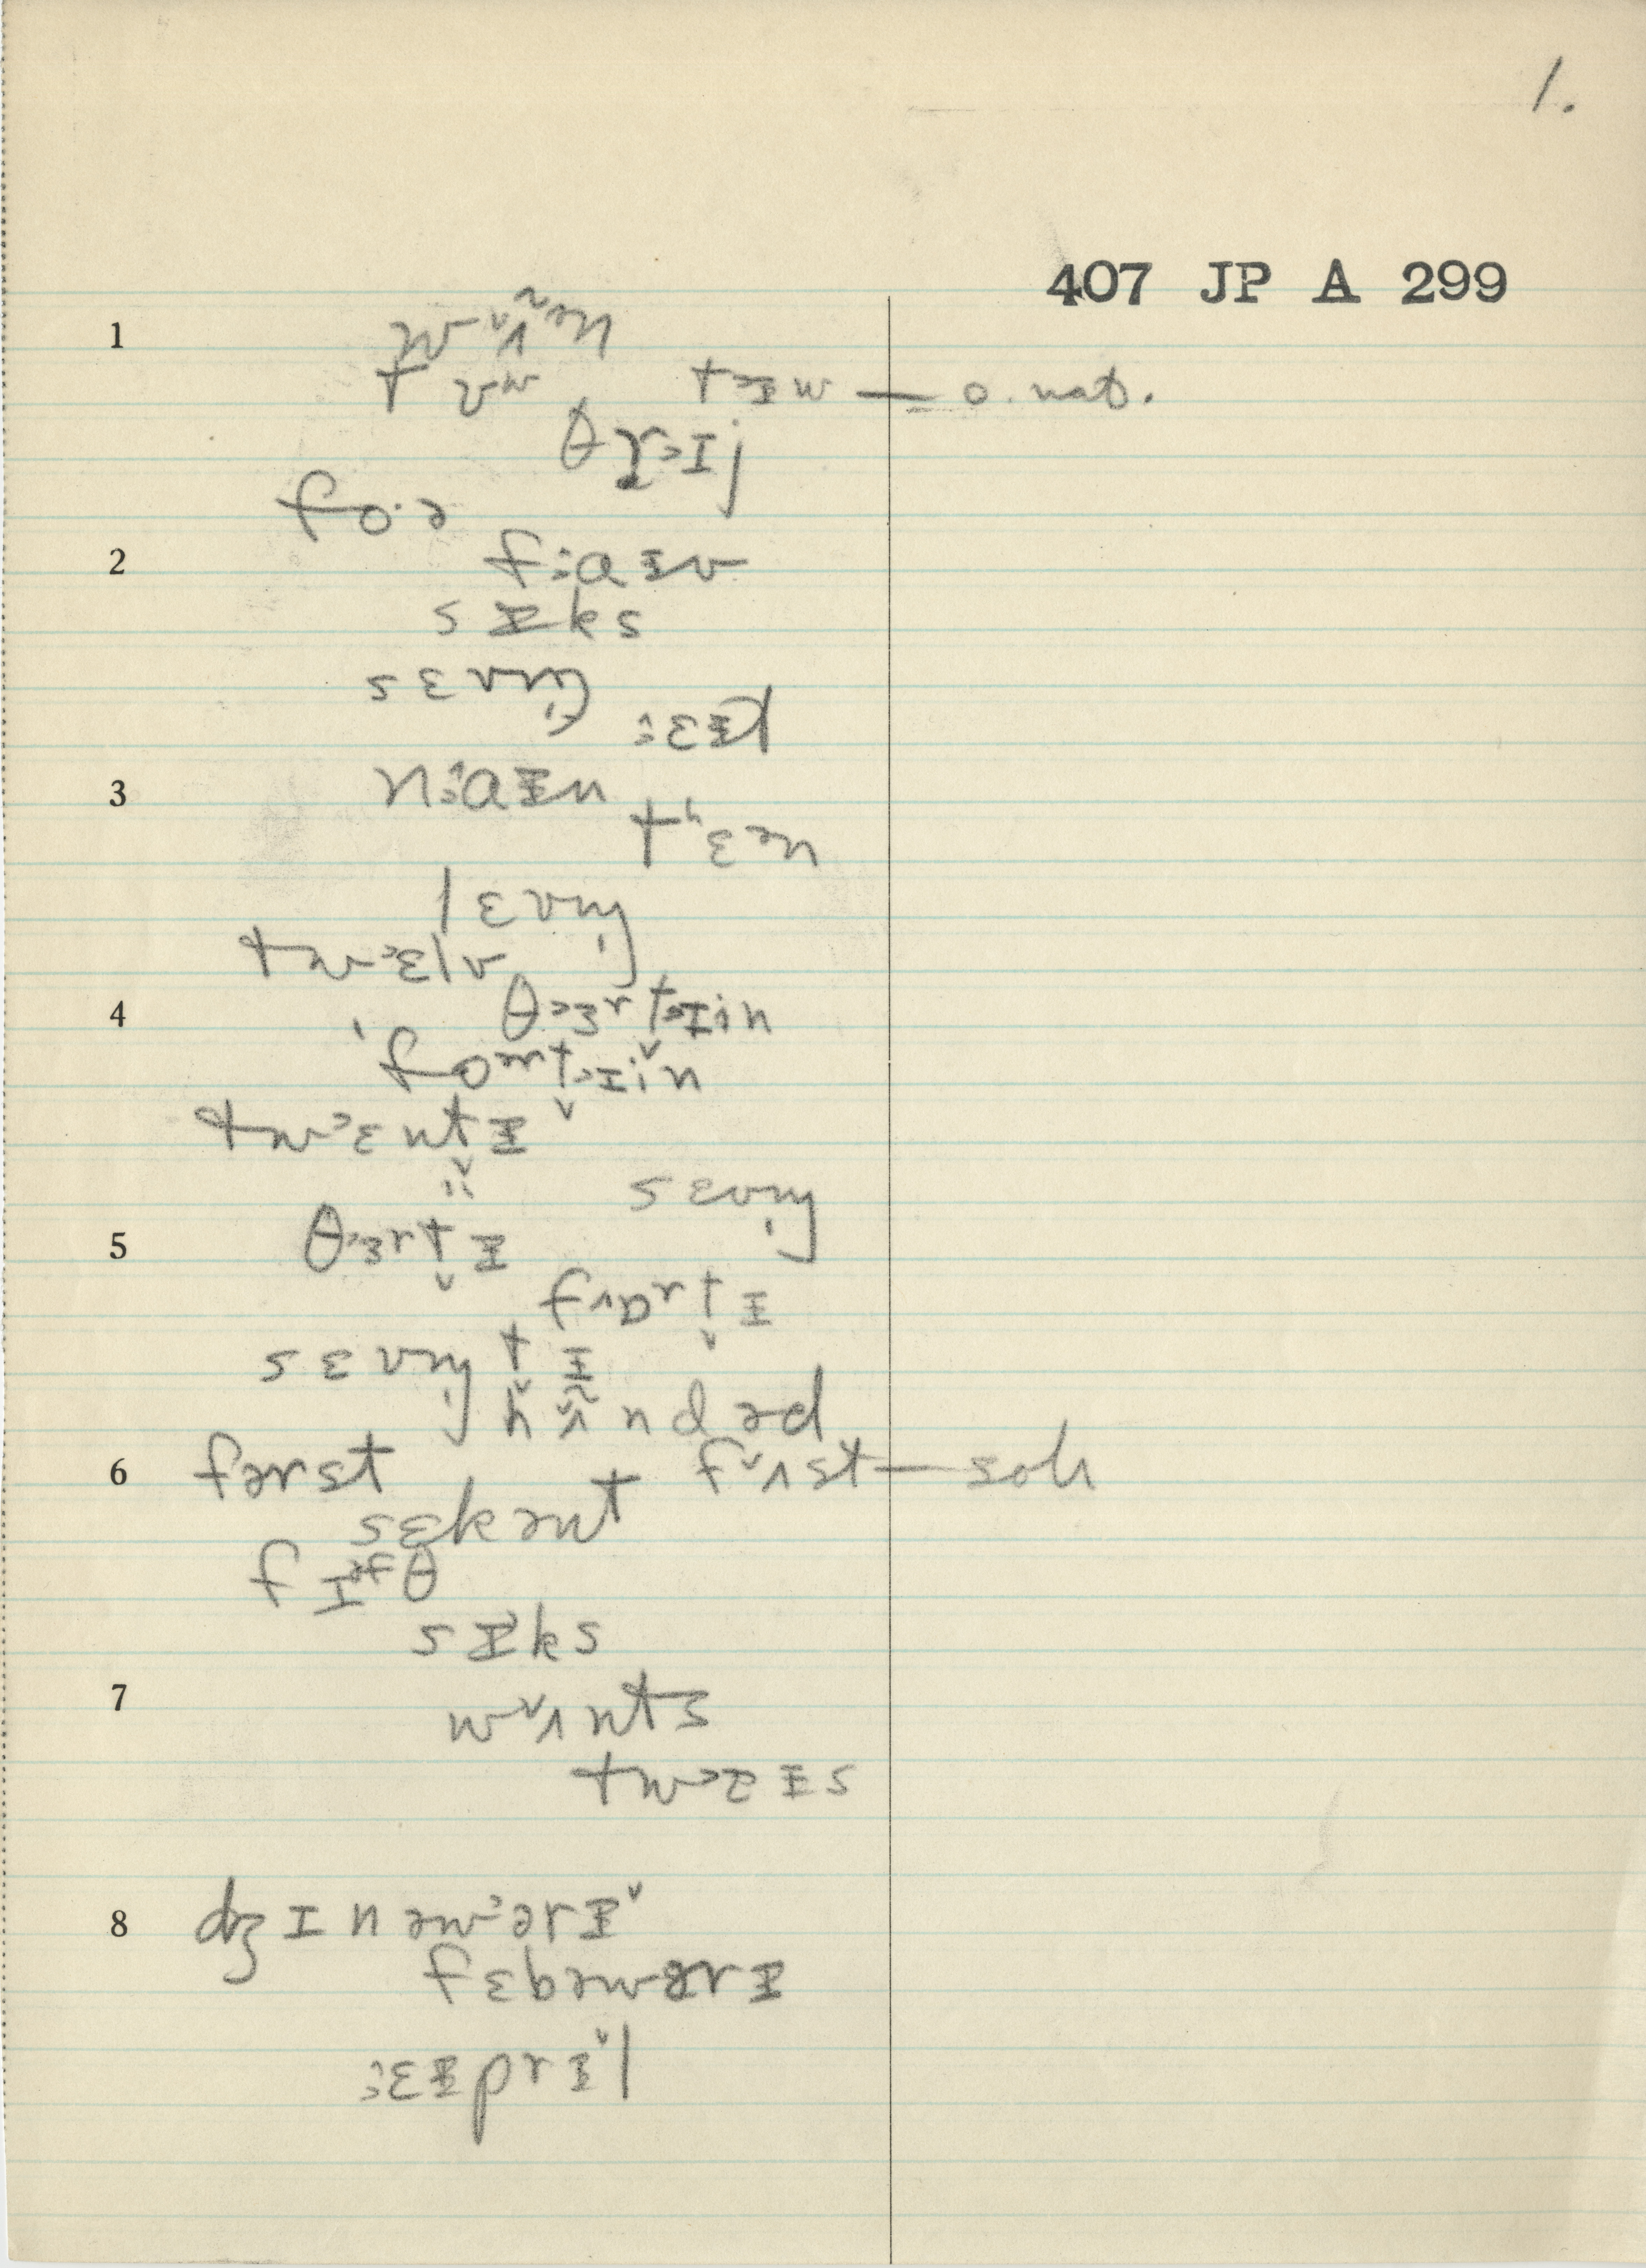 1.
407 JP A 299
1 wʌ̃ᵊn
t ʊʷ tɨw — o. nat.
θrɪj
foˑə
2 fːaɪv
sɪks
sɛvn̩
ːɛɪt
3 nːaɪn
tʰɛən
lɛvn̩
twɛlv
4 θɜrtɪin
ˈfoərt̬ɪin
twɛntɪ
sɛvn̩
5 θɜrt̬ɪ
fɒrt̬ɪ
sɛvn̩t̬ɪ
hʌ̃ndəd
6 fərst fʌst — soh
sɛkənt
fɪᵊfθ
sɪks
7 wʌnts
twɪs
8 dʒɪnəwərɪ
fɛbəwərɪ
ːɛɪprɪl